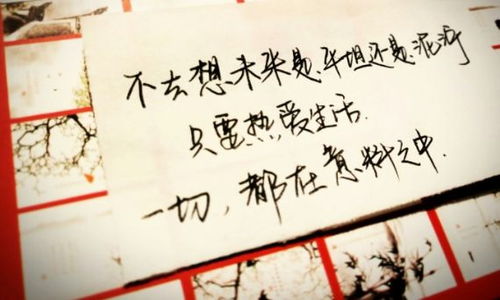 不去想未来是平坦还是泥泞
只要热爱生活.
一切,都在意料之中.